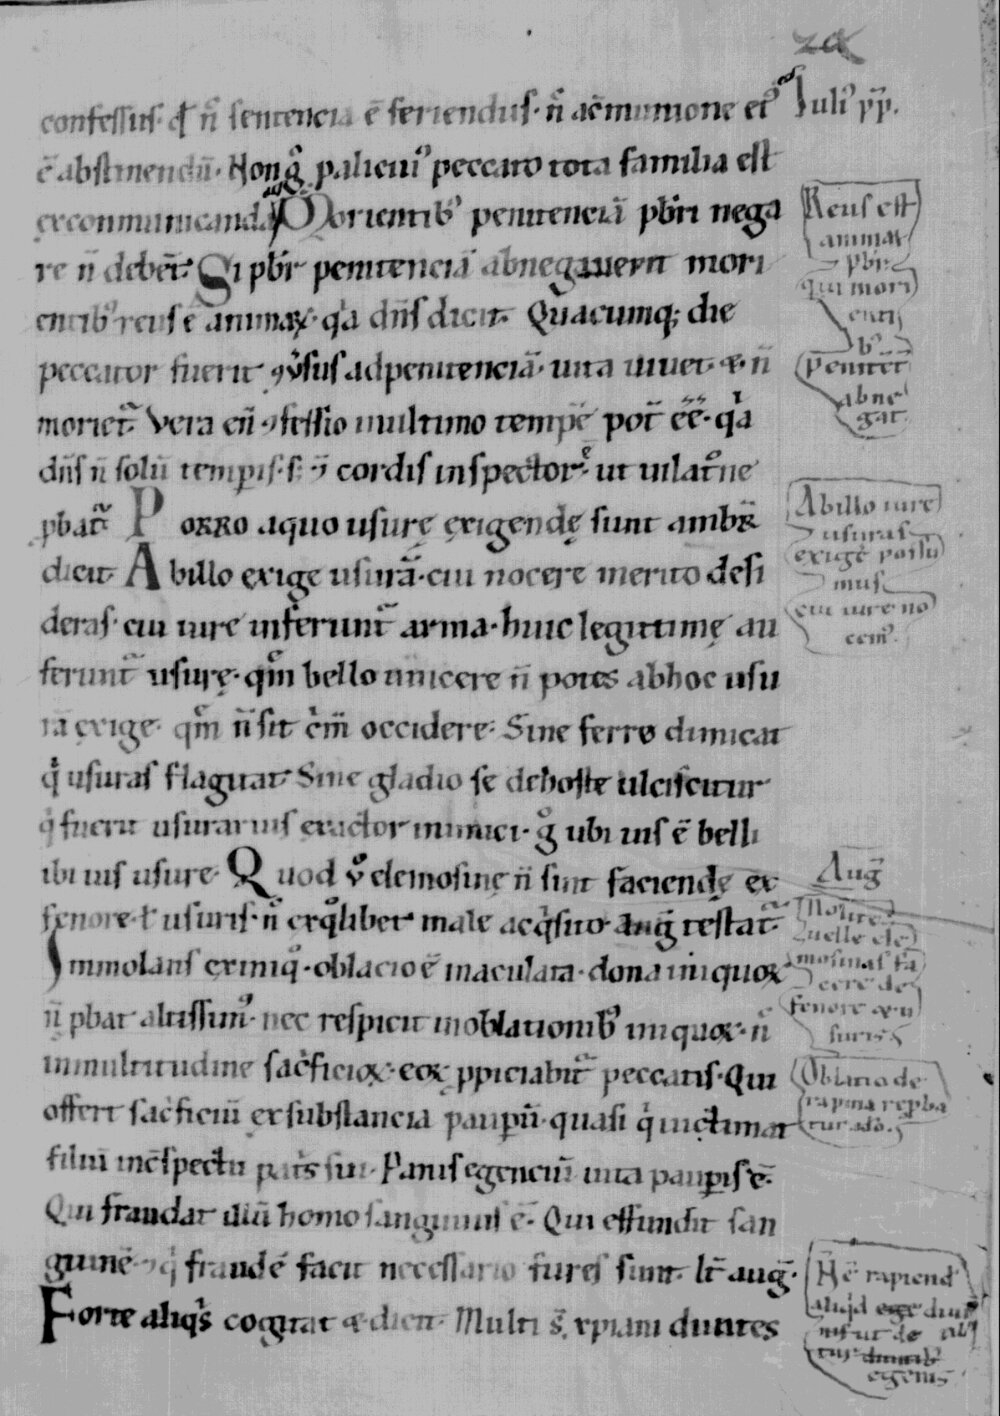 29
confessus· qđ n̄ sentencia ē feriendus· n̄ ac̄munione eiꝰ
ē abstinendū· Non g̊ p alicuiꝰ peccato tota familia est
excommunicanda Morientibꝰ penitenciā pb̄ri nega
re n̄ debent̄· Si pb̄r penitenciā abnegauerit mori
entibꝰ reus ē animaꝝ· q̇a dn̄s dicit· Quacumq; die
peccator fuerit ꝯv̄sus ad penitenciā· uita uiuet· & n̄
moriet᷑· Vera eni̅ ꝯfessio in ultimo tempe̅ pot̄ ēē· q̇a
dn̄s n̄ solū temp̱is· s; ⁊ cordis inspector ē· ut in latrone
ꝓbat᷑· Porro a quo usurę exigendę sunt ambr̄
dicit· Ab illo exige usurā· cui nocere merito desi
deras· cui iure inferunt᷑ arma· huic legittimę au
ferunt᷑ usurę· quē bello uincere n̄ potes ab hoc usu
rā exige· quē n̄ sit c̄m̄ occidere· Sine ferro dimicat
q̇ usuras flagitat· Sine gladio se de hoste ulciscitur
q̇ fuerit usurarius exactor inimici· g̊ ubi ius ē belli
ibi ius usure· Quod v̊ elemosinę n̄ sint faciendę ex
fenore· ł usuris· n̊ ex q̊libet male acq̇sito· aug̅ testat᷑·
Immolans ex iniq̊· oblacio ē maculata· dona iniquoꝝ
n̄ ꝓbat altissimꝰ· nec respicit in oblationibꝰ iniquoꝝ· n̊
in multitudine sac̄ficioꝝ· eoꝝ ꝓpiciabit᷑ peccatis· Qui
offert sac̄ficiū ex substancia paup̱ū· quasi q̇ uictimat
filiū in c̄spectu pat̄s sui· Panis egenciū uita paup̱is ē·
Qui fraudat illū homo sanguinis ē· Qui effundit san
guinē· ⁊ q̇ fraudē facit necessario fures sunt· It̄ aug̅·
Forte aliq̇s cogitat & dicit· Multi s̄ xp̄iani diuites
Iuliꝰ pp̄.
Reus est
animaꝝ
pb̄r
qui mori
enti
bꝰ
penitēt
abne
gat·
Ab illo iure
usuras
exigē possu
mus
cui iure no
cemꝰ·
Aug̅
Nolite
uelle ele
mosinas fa
cere de
fenore & u
suris
Oblatio de
rapina rep̱ba
tur a dō·
aliq̇d
ut de
tur
egenis